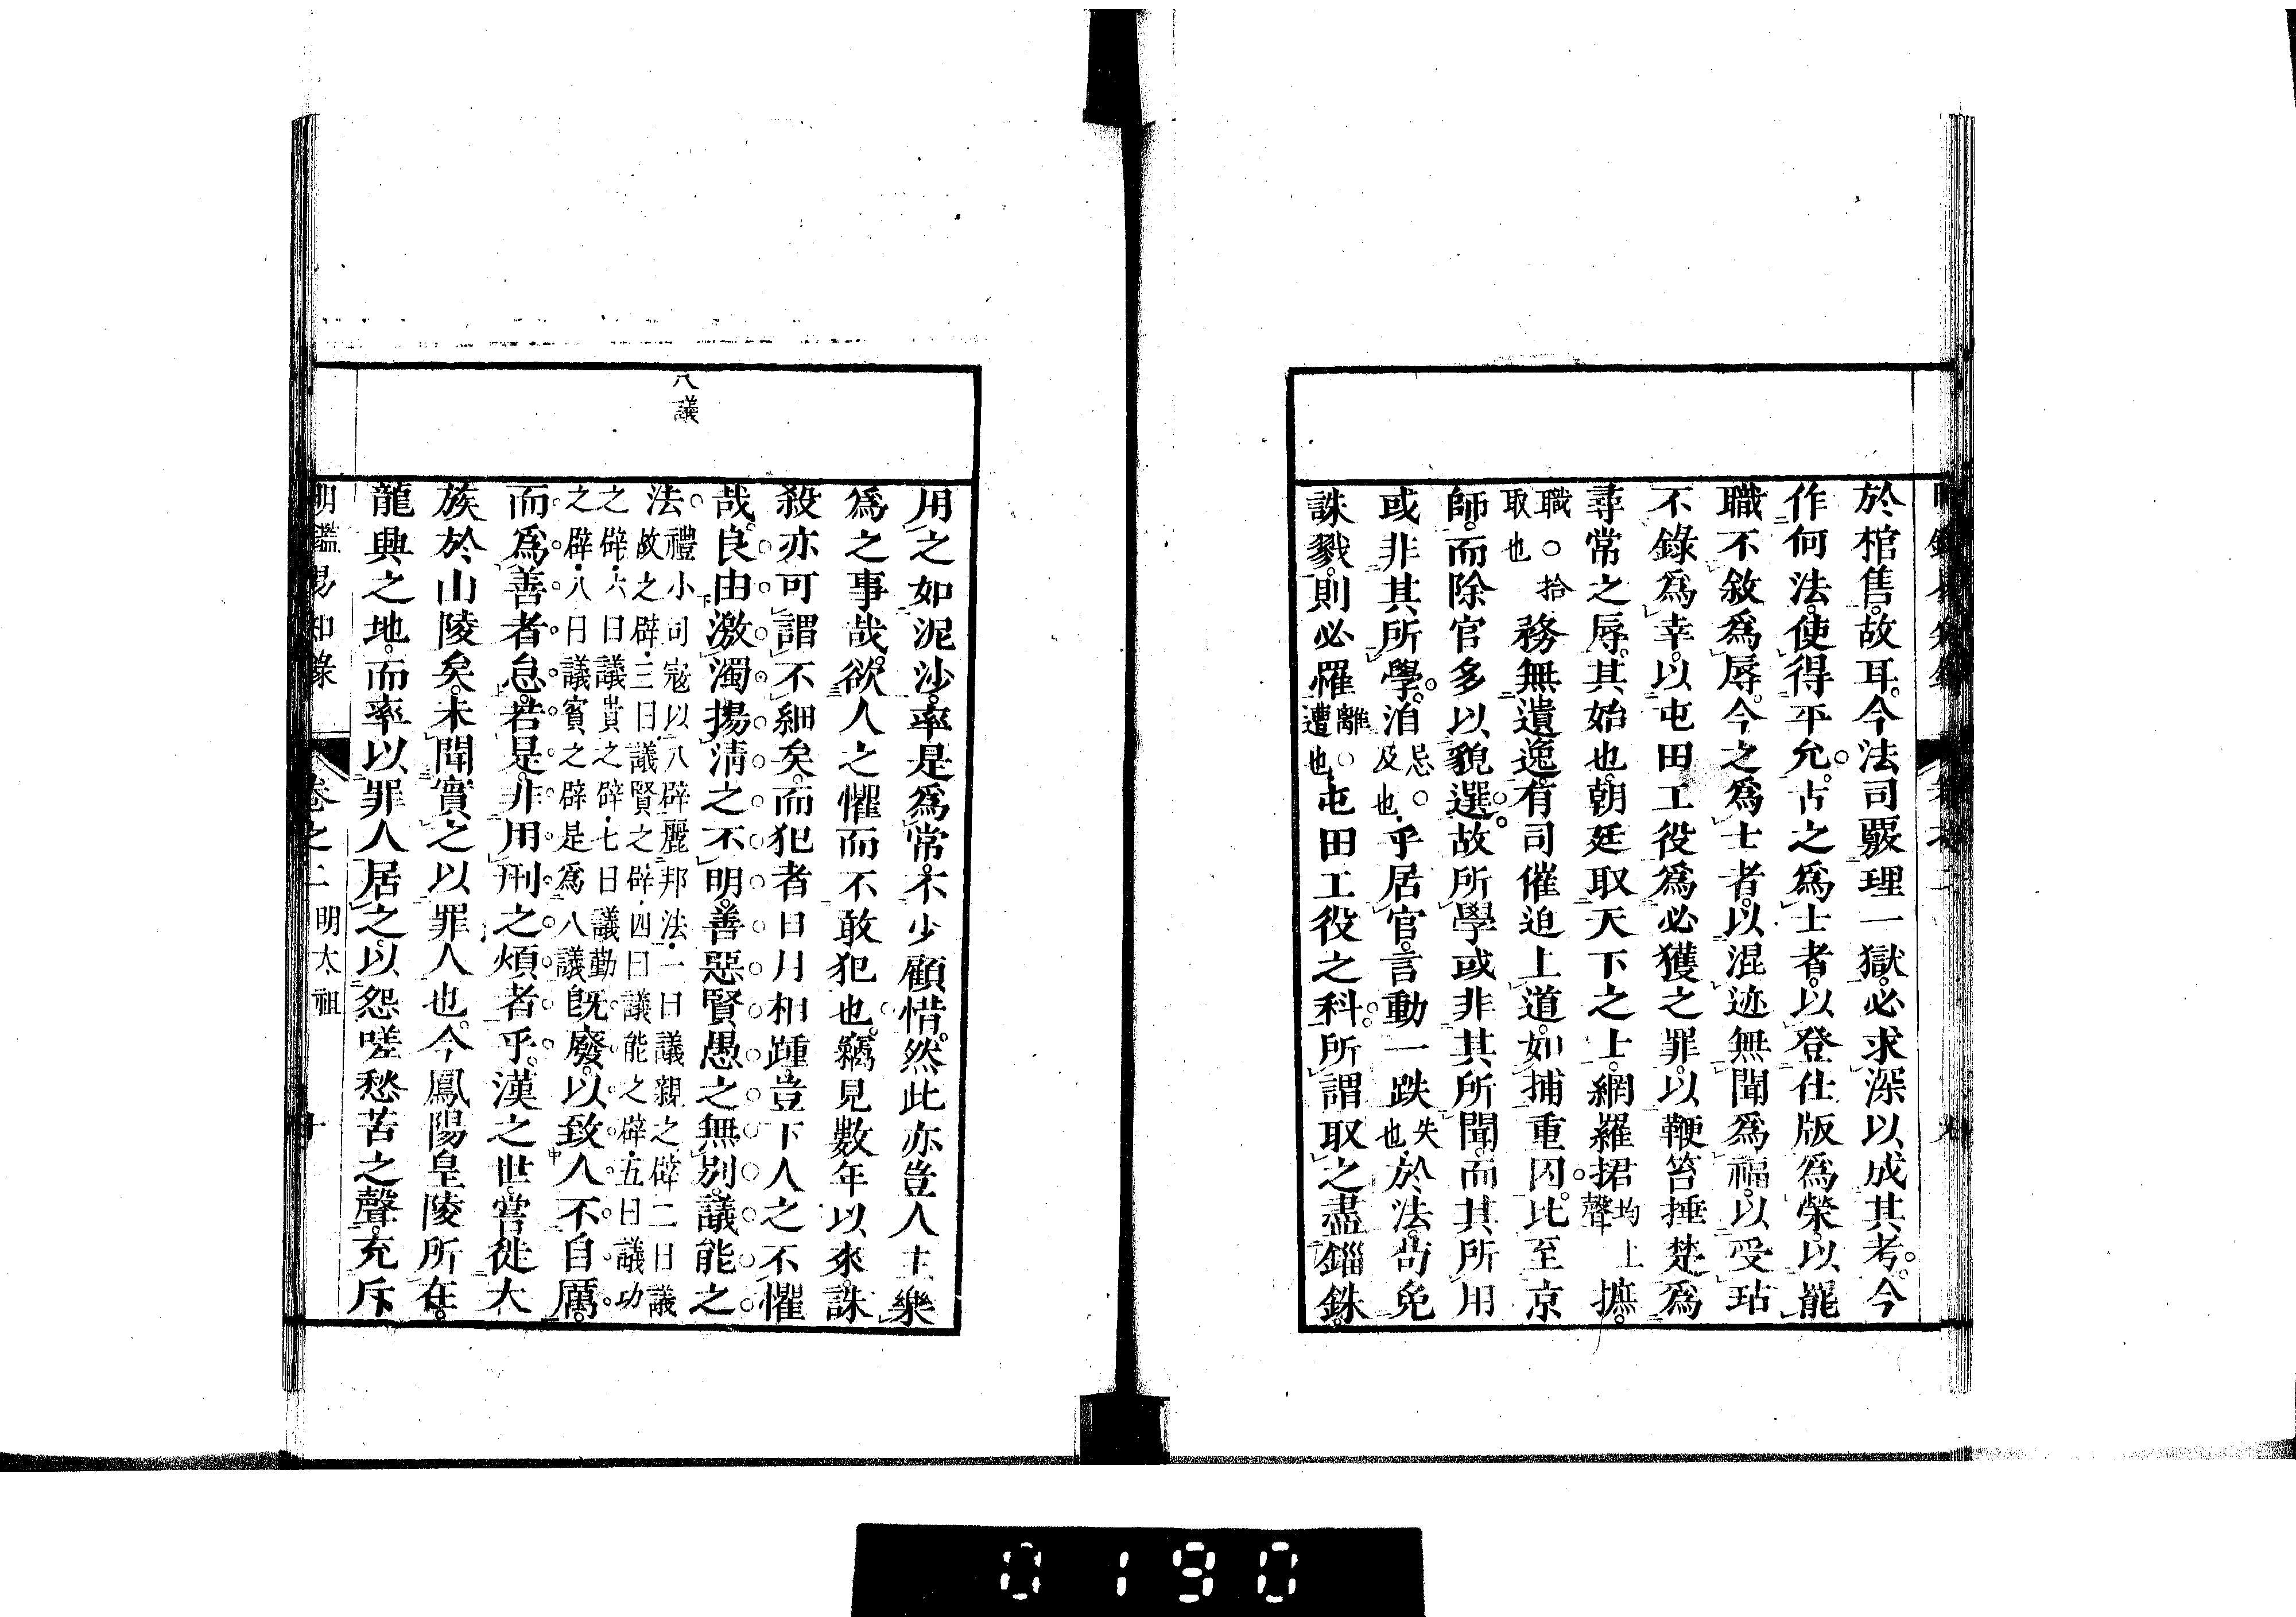 於棺售故耳今法司覈理一獄必求深以成其考今
作何法使得平允古之爲士者以登仕版爲榮以罷
職不敘爲辱今之爲士者以混迹無聞爲福以受玷
不錄爲幸以屯田工役爲必獲之罪以鞭笞捶楚爲
尋常之辱其始也朝廷取天下之士網羅捃均上聲摭
職○拾取也務無遺逸有司催迫上道如捕重囚比至京
師而除官多以貌選故所學或非其所聞而其所用
或非其所學洎忌○及也乎居官言動一跌失也於法苟免
誅戮則必罹離○遭也屯田工役之科所謂取之盡錙銖
八議
用之如泥沙率是爲常不少顧惜然此亦豈人主樂
爲之事哉欲人之懼而不敢犯也竊見數年以來誅
殺亦可謂不細矣而犯者日月相踵豈下人之不懼
哉良由激濁揚清之不明善惡賢愚之無別議能之
法禮小司寇以八辟麗邦法一曰議親之辟二曰議故之辟三曰議賢之辟四曰議能之辟五曰議功
之辟六曰議貴之辟七曰議勤之辟八曰議賓之辟是爲八議既廢以致人不自厲
而爲善者怠若是非用刑之煩者乎漢之世嘗徙大
族於山陵矣未聞實之以罪人也今鳳陽皇陵所在
龍興之地而率以罪人居之以怨嗟愁苦之聲充斥
明鑑易知錄 卷之二 明太祖 十
0190